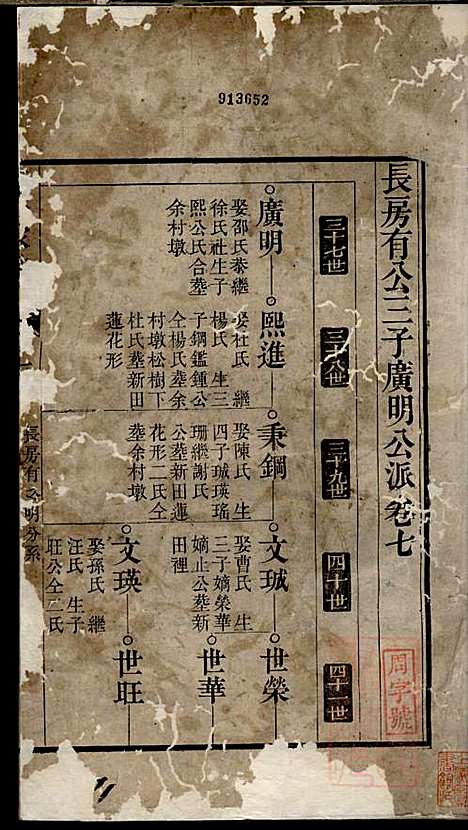 913652
長房有公三子廣明公派 卷七
三十七世
三十八世
三十九世
四十世
四十一世
廣明
娶邵氏泰繼
徐氏社生子
熙公氏合葬
余村墩
熙進
娶杜氏 繼
楊氏 生三
子鋼鑑鍾公
仝楊氏葬余
村墩松樹下
杜氏葬新田
蓮花形
秉鋼
娶陳氏 生
四子珹瑛瑤
珊繼謝氏
公葬新田蓮
花形二氏仝
葬余村墩
文珹
娶曹氏 生
三子嫡榮華
嫡止公葬新
田裡
世榮
世華
文瑛
娶孫氏 繼
汪氏 生子
旺公仝二氏
世旺
長房有公明分系
周字號